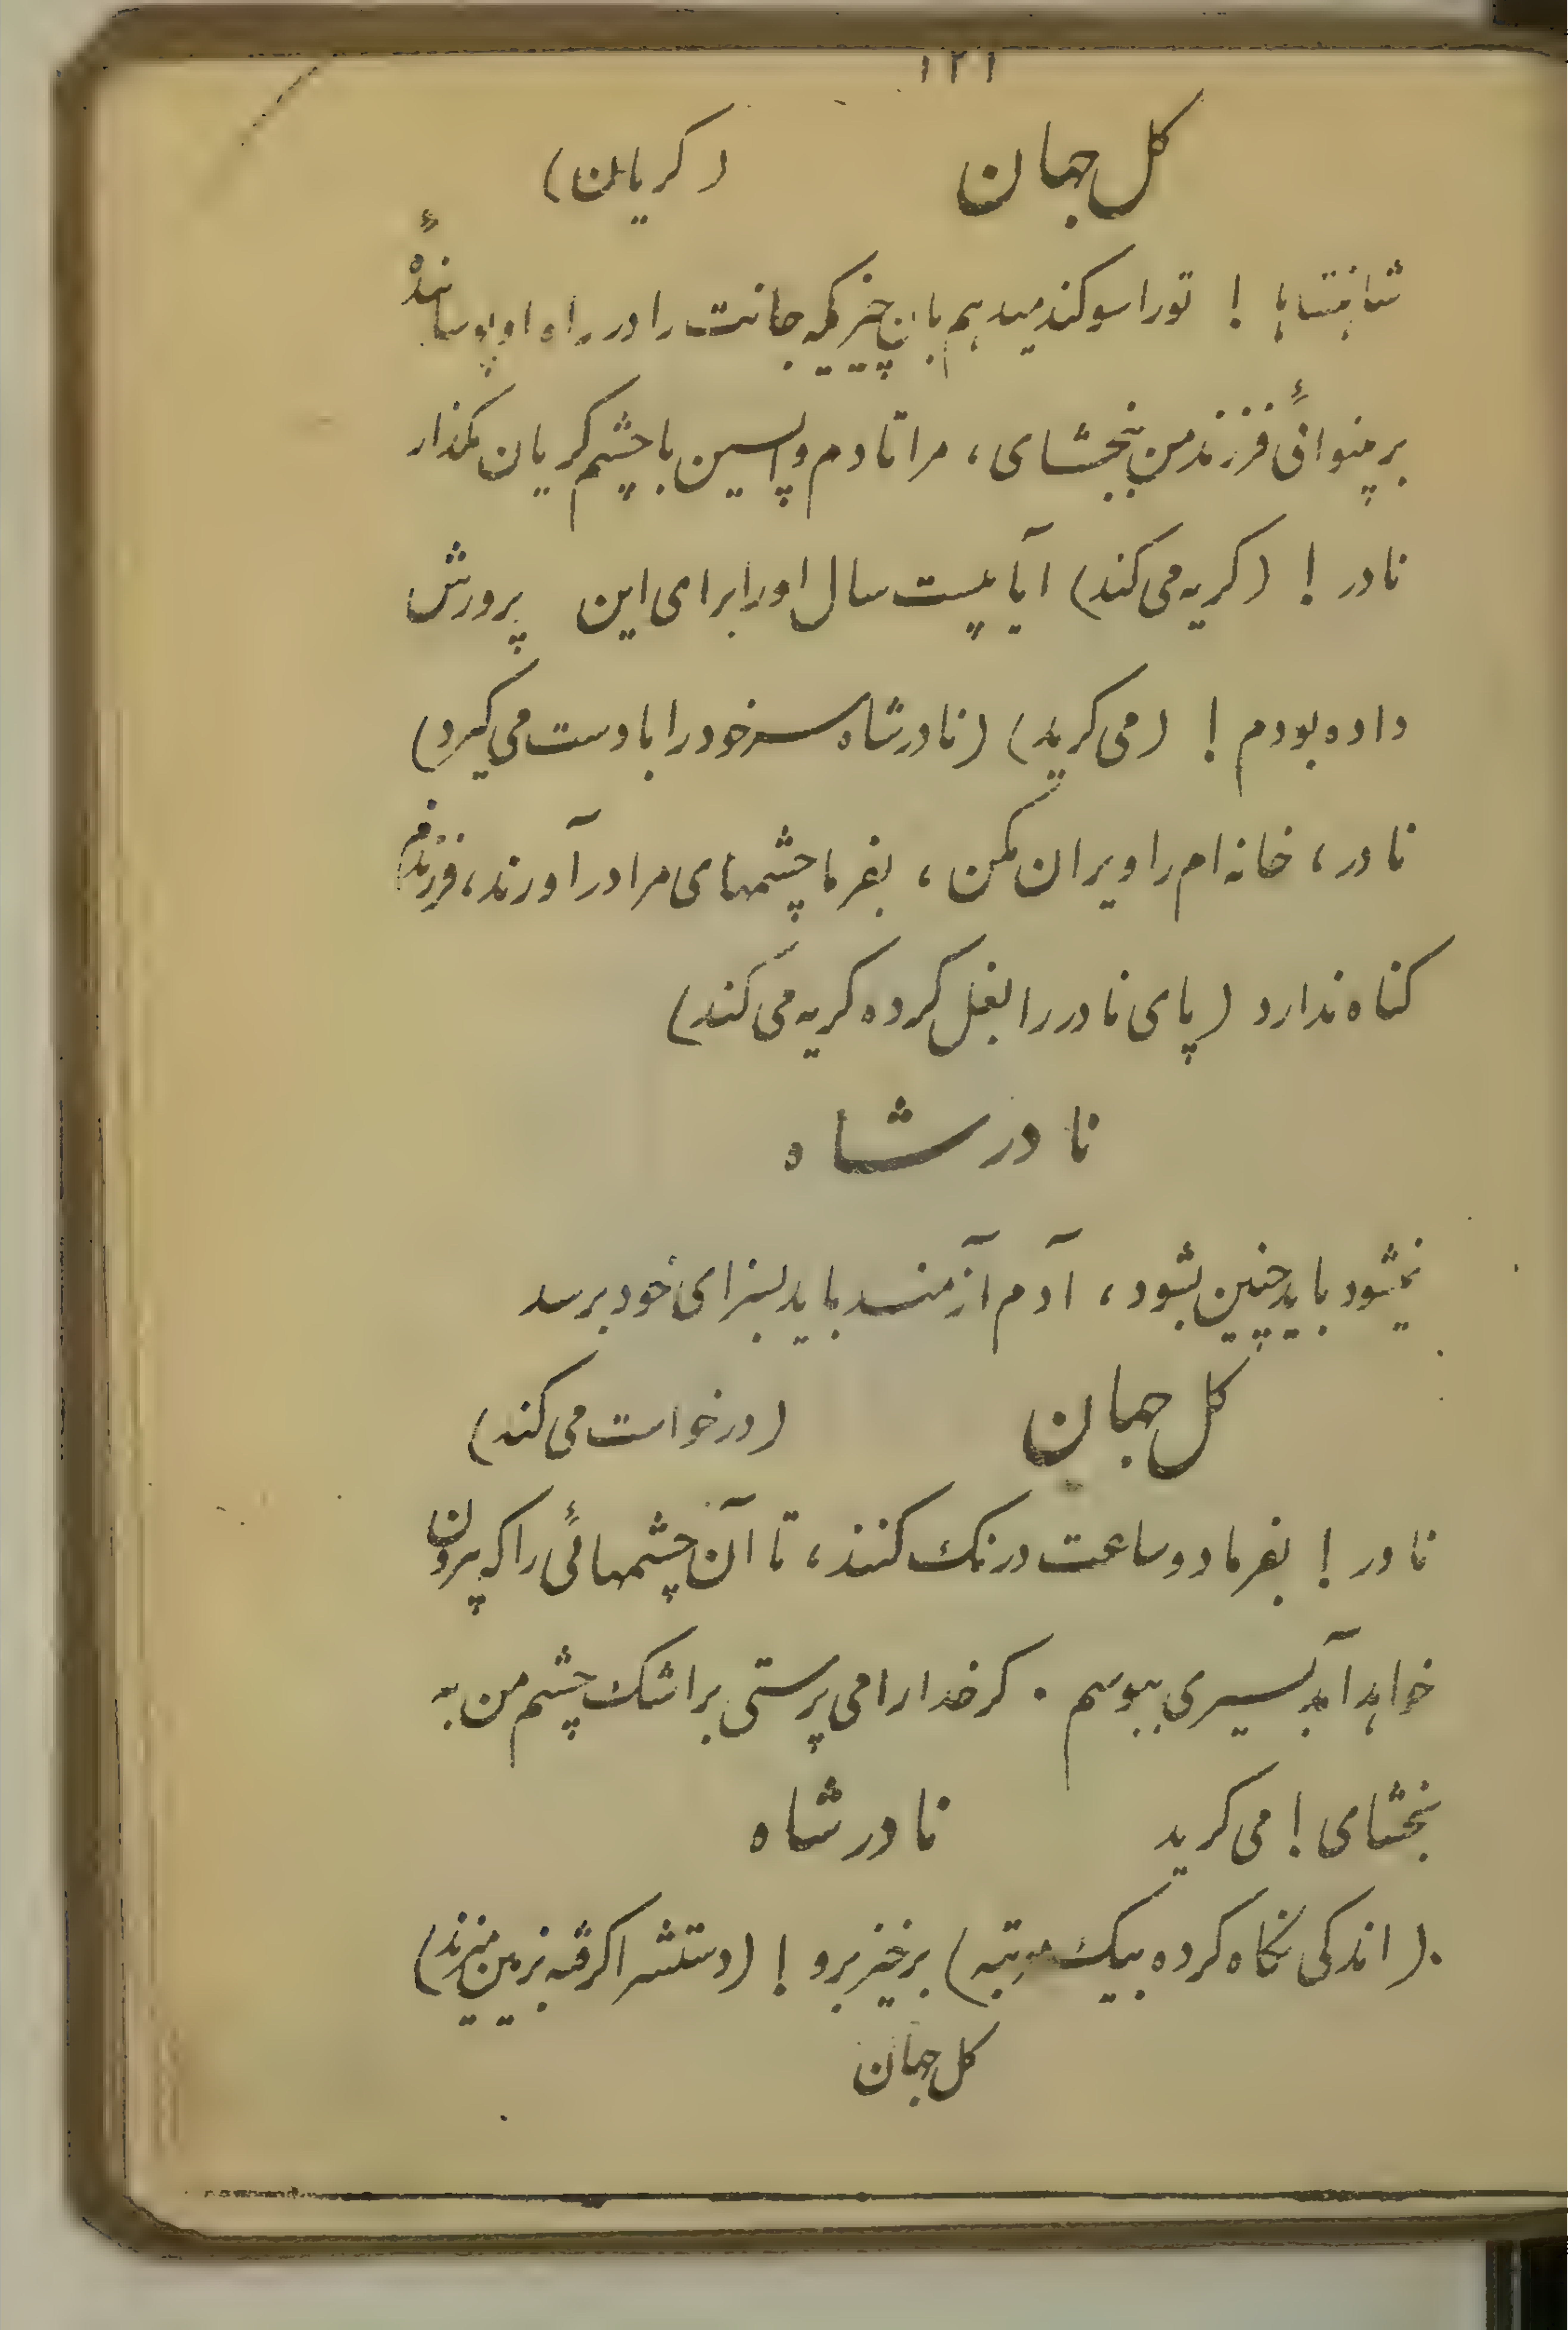 ۱۲۱
کل جهان (کریان)
شاهنشاها ! تورا سوکند میدهم بان چیزیکه جانت را در راه او پوسانندهٔ
بر بینوائی فرزند من ببخشای، مرا تا دم واپسین با چشم کریان مکذار
نادر ! (کریه می کند) آیا بیست سال اورا برای این پرورش
داده بودم ! (می کرید) (نادر شاه سر خود را با دست می کیرد)
نادر، خانه ام را ویران مکن، بفرما چشمهای مرا در آورند، فرزندم
کناه ندارد (پای نادر را بغل کرده کریه می کند)
نادر شاه
نمیشود باید چنین بشود، آدم آزمند باید بسزای خود برسد
کل جهان (درخواست می کند)
نادر ! بفرما دو ساعت درنک کنند، تا آن چشمهائی را که بیرون
خواهد آمد بسیری ببوسم . کر خدا را می پرستی بر اشک چشم من به
بخشای ! می کرید نادر شاه
(اندکی نکاه کرده بیک مرتبه) برخیز برو ! (دستش را کرفته بزمین میزند)
کل جهان